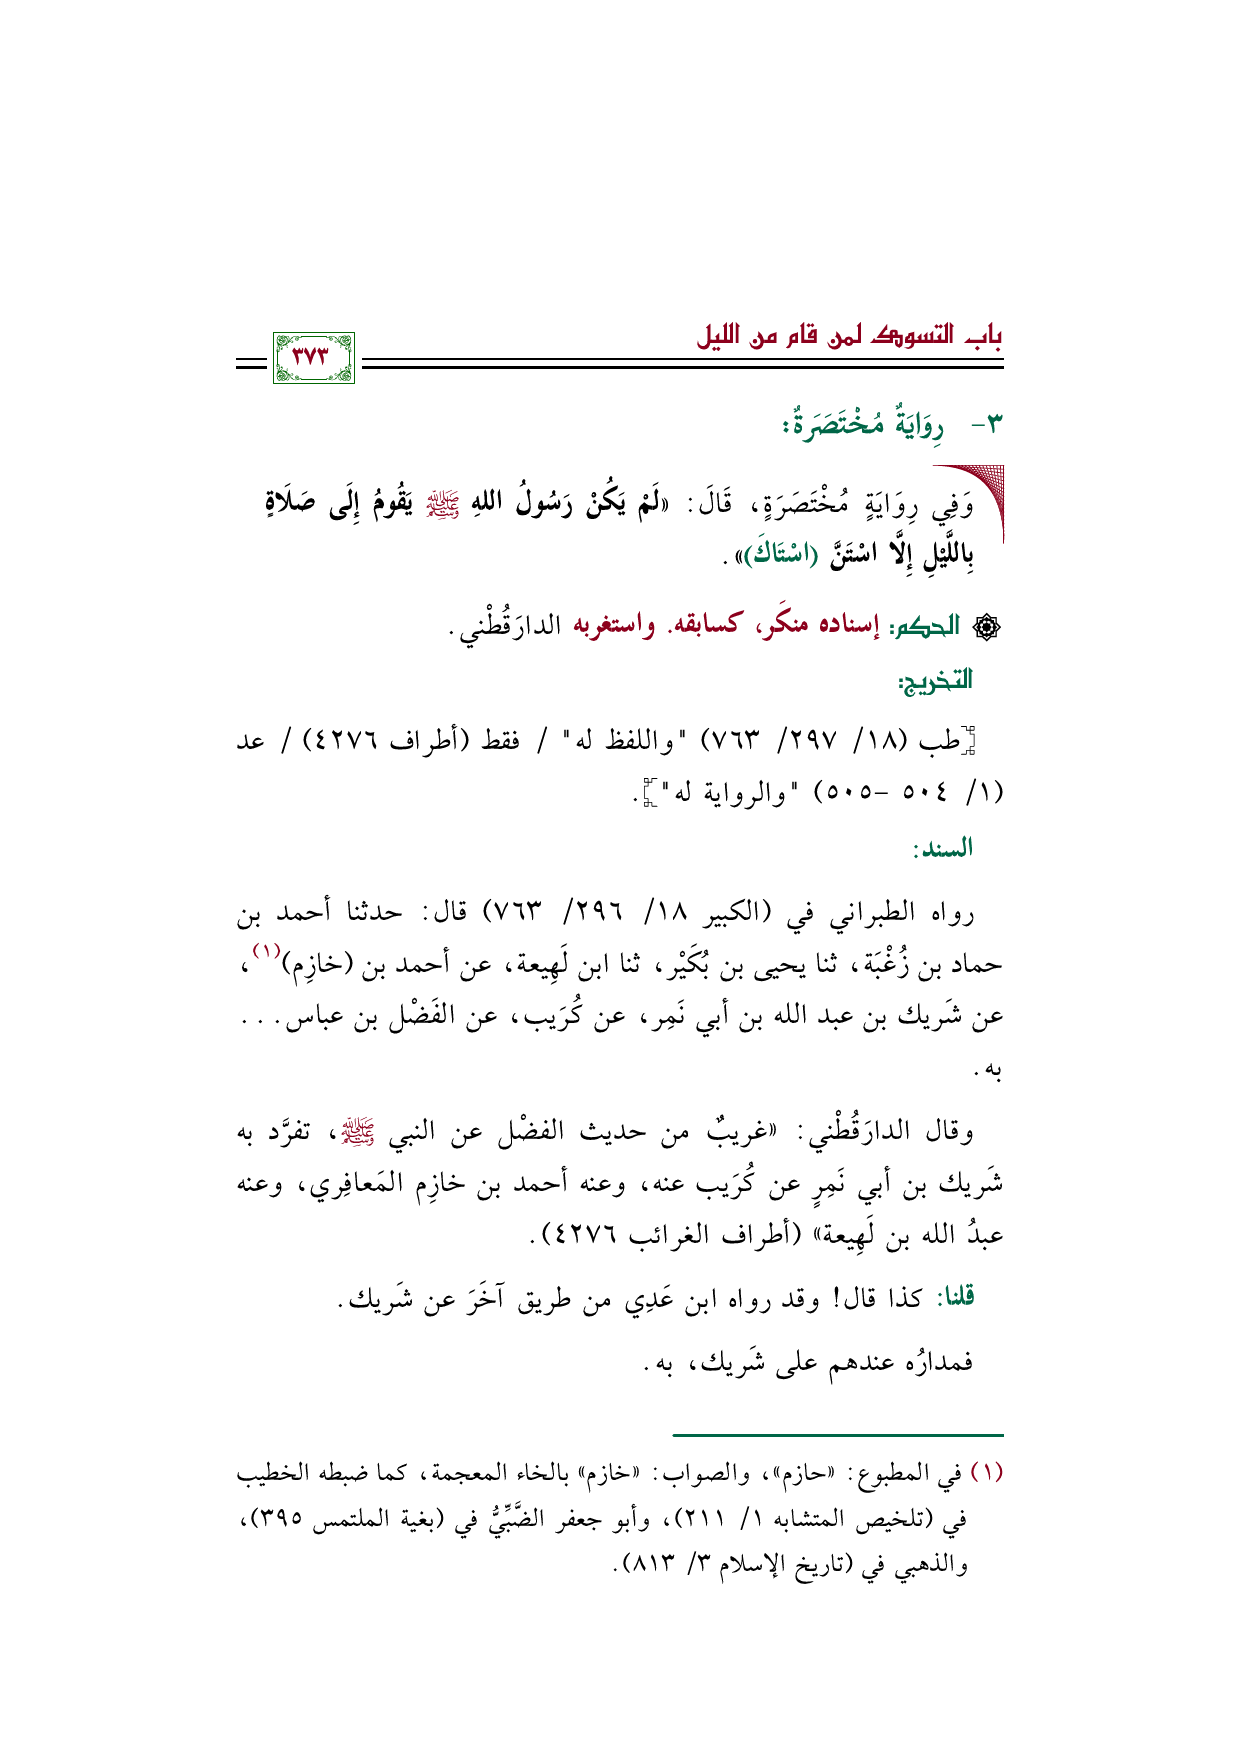 باب التسوك لمن قام من الليل
٣٧٣
٣- رِوَايَةٌ مُخْتَصَرَةٌ:
وَفِي رِوَايَةٍ مُخْتَصَرَةٍ، قَالَ: «لَمْ يَكُنْ رَسُولُ اللهِ ﷺ يَقُومُ إِلَى صَلَاةٍ
بِاللَّيْلِ إِلَّا اسْتَنَّ (اسْتَاكَ)».
الحكم: إسناده منكَر، كسابقه. واستغربه الدارَقُطْني.
التخريج:
[طب (١٨/ ٢٩٧/ ٧٦٣) "واللفظ له" / فقط (أطراف ٤٢٧٦) / عد
(١/ ٥٠٤ -٥٠٥) "والرواية له"].
السند:
رواه الطبراني في (الكبير ١٨/ ٢٩٦/ ٧٦٣) قال: حدثنا أحمد بن
حماد بن زُغْبَة، ثنا يحيى بن بُكَيْر، ثنا ابن لَهِيعة، عن أحمد بن (خازِم)(١)،
عن شَريك بن عبد الله بن أبي نَمِر، عن كُرَيب، عن الفَضْل بن عباس...
به.
وقال الدارَقُطْني: «غريبٌ من حديث الفضْل عن النبي ﷺ، تفرَّد به
شَريك بن أبي نَمِرٍ عن كُرَيب عنه، وعنه أحمد بن خازِم المَعافِري، وعنه
عبدُ الله بن لَهِيعة» (أطراف الغرائب ٤٢٧٦).
قلنا: كذا قال! وقد رواه ابن عَدِي من طريق آخَرَ عن شَريك.
فمدارُه عندهم على شَريك، به.
(١) في المطبوع: «حازم»، والصواب: «خازم» بالخاء المعجمة، كما ضبطه الخطيب
في (تلخيص المتشابه ١/ ٢١١)، وأبو جعفر الضَّبِّيُّ في (بغية الملتمس ٣٩٥)،
والذهبي في (تاريخ الإسلام ٣/ ٨١٣).